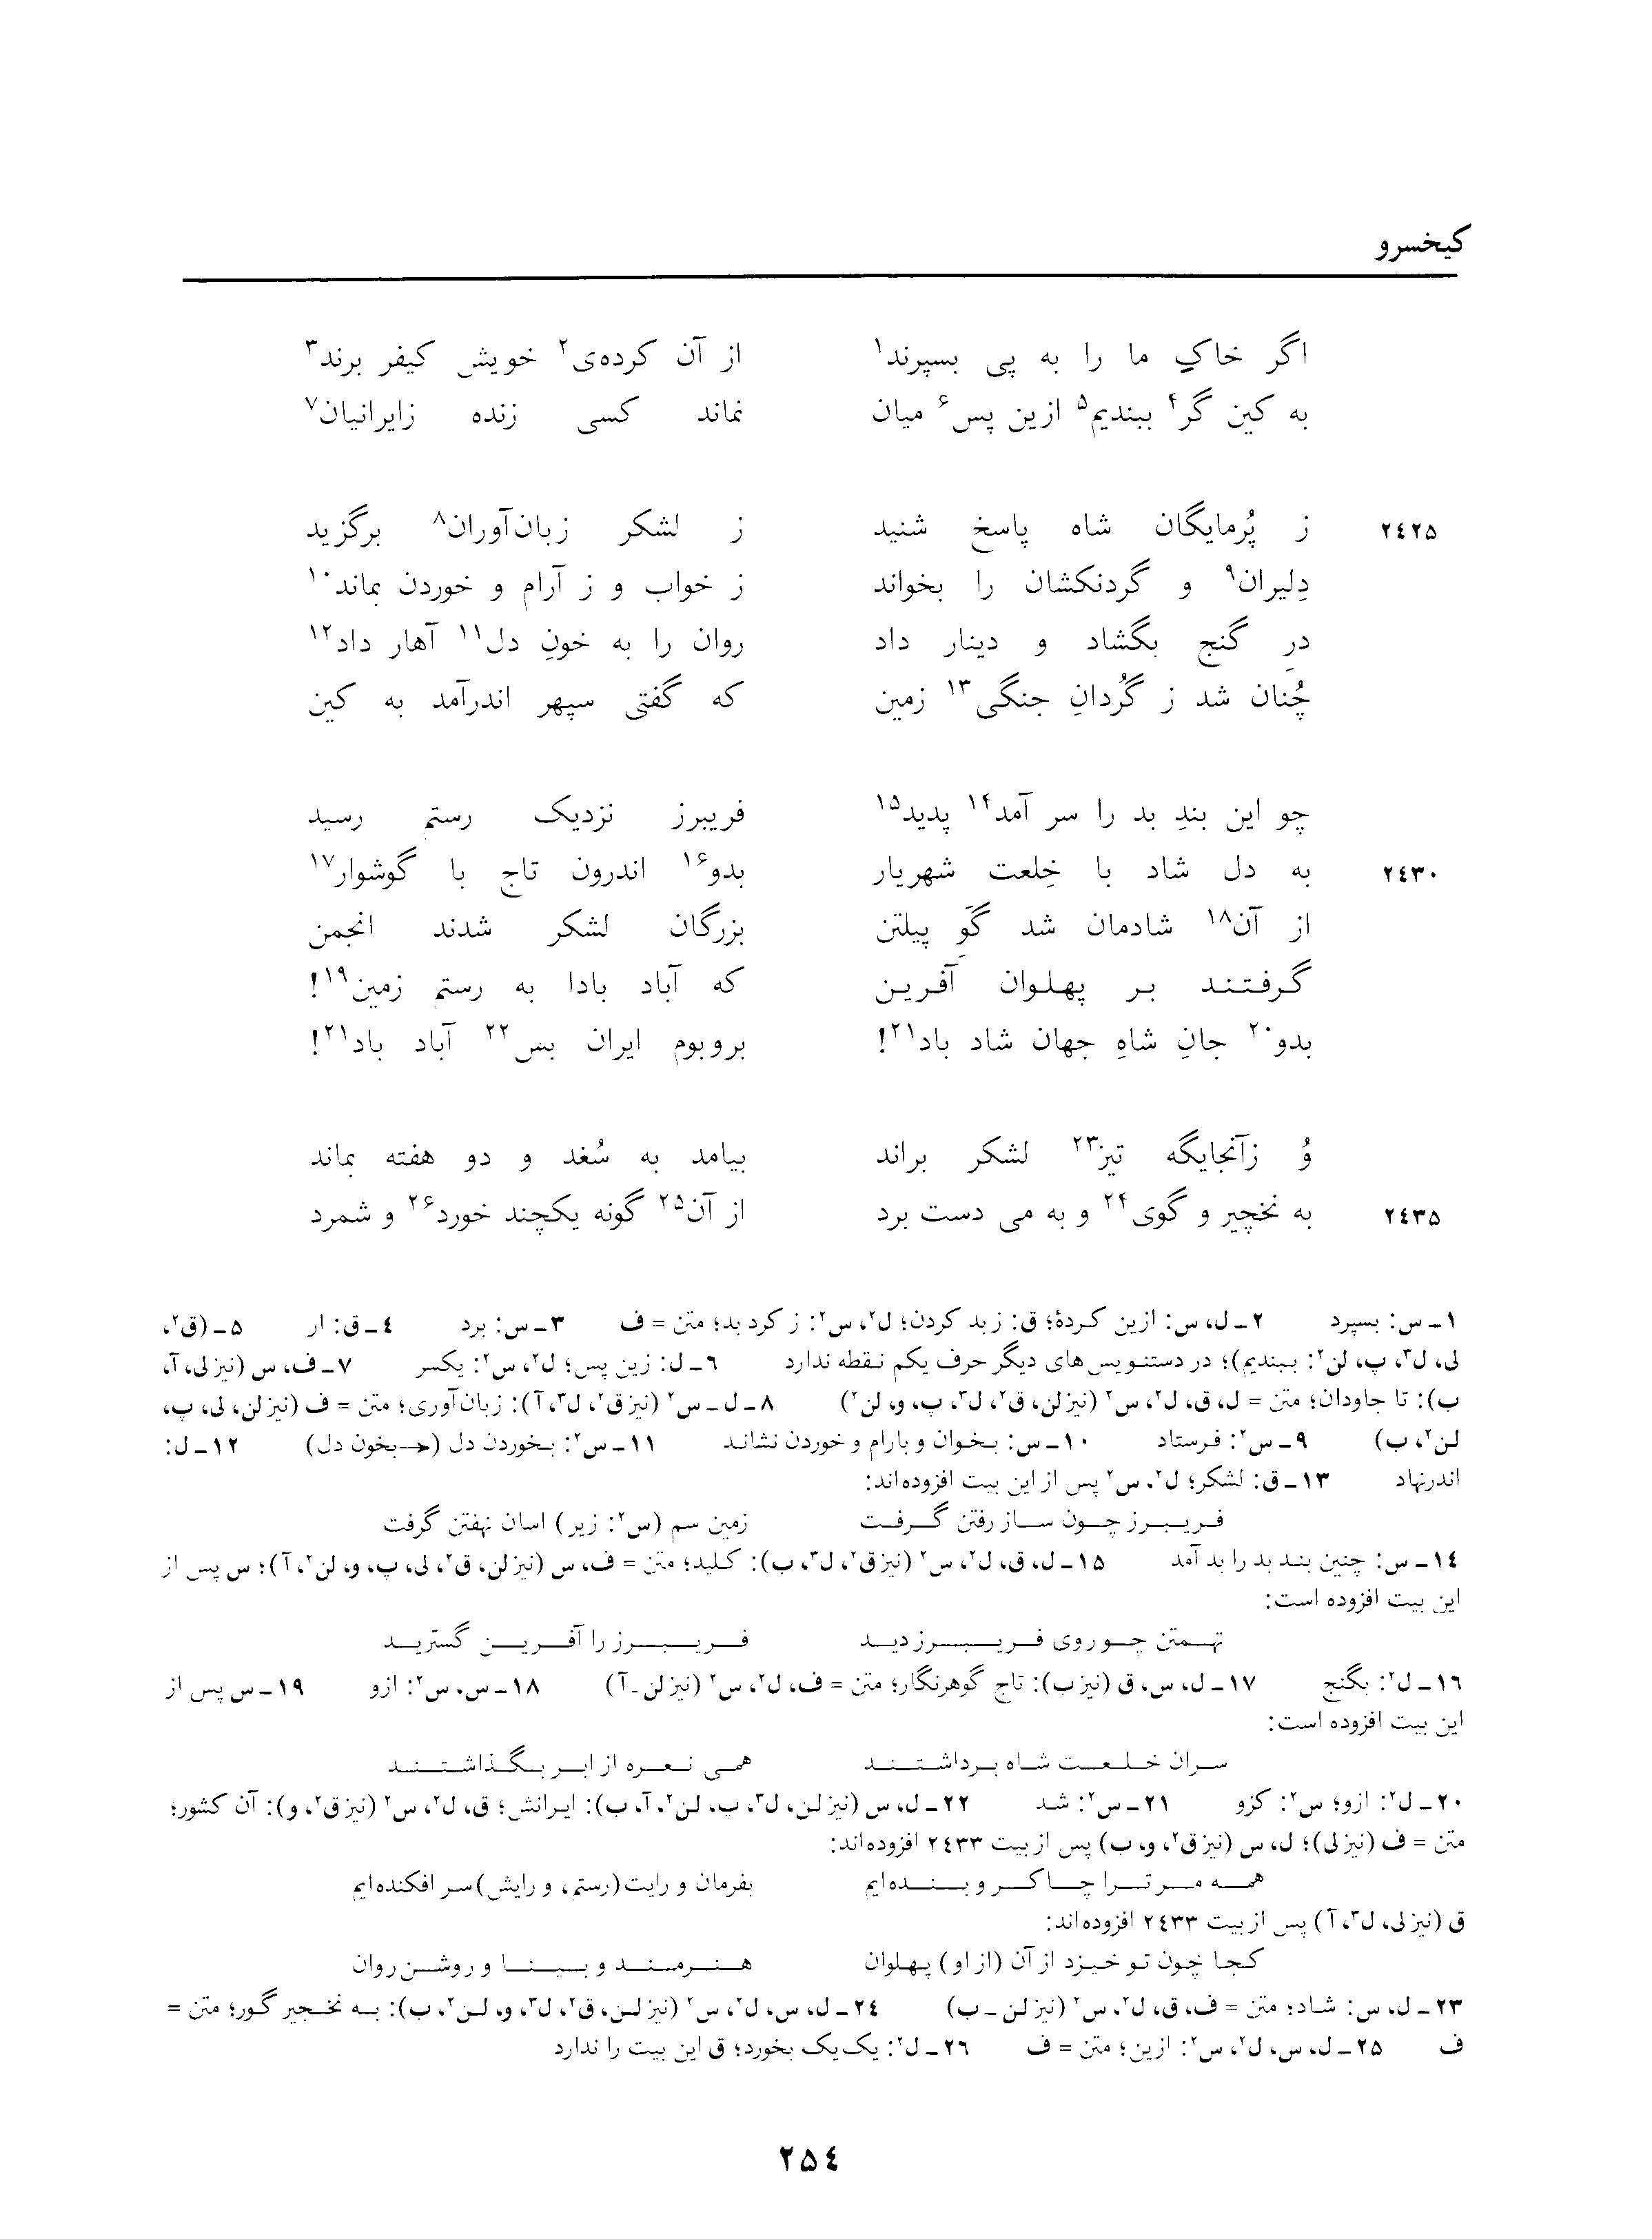 کیخسرو
اگر خاکِ ما را به پی بسپرند۱ از آن کرده‌ی۲ خویش کیفر برند۳
به کین گر۴ ببندیم۵ ازین پس۶ میان نماند کسی زنده زایرانیان۷
۲٤۲۵ ز پُرمایگان شاه پاسخ شنید ز لشکر زبان‌آوران۸ برگزید
دِلیران۹ و گردنکشان را بخواند ز خواب و ز آرام و خوردن بماند۱۰
درِ گنج بگشاد و دینار داد روان را به خونِ دل۱۱ آهار داد۱۲
چُنان شد ز گُردانِ جنگی۱۳ زمین که گفتی سپهر اندرآمد به کین
چو این بندِ بد را سر آمد۱۴ پدید۱۵ فریبرز نزدیک رستم رسید
۲٤۳۰ به دل شاد با خِلعت شهریار بدو۱۶ اندرون تاج با گوشوار۱۷
از آن۱۸ شادمان شد گَوِ پیلتن بزرگان لشکر شدند انجمن
گرفتند بر پهلوان آفرین که آباد بادا به رستم زمین۱۹!
بدو۲۰ جانِ شاهِ جهان شاد باد۲۱! بروبوم ایران بس۲۲ آباد باد۲۱!
وُ زآنجایگه تیز۲۳ لشکر براند بیامد به سُغد و دو هفته بماند
۲٤۳۵ به نخچیر و گوی۲۴ و به می دست برد از آن۲۵ گونه یکچند خورد۲۶ و شمرد
۱ـ س: بسپرد ۲ـ ل، س: ازین کردهٔ؛ ق: زبد کردن؛ ل۲، س۲: ز کرد بد؛ متن = ف ۳ـ س: برد ٤ـ ق: ار ۵ـ (ق۲،
لی، ل۳، پ، لن۲: ببندیم)؛ در دستنویس‌های دیگر حرف یکم نقطه ندارد ٦ـ ل: زین پس؛ ل۲، س۲: یکسر ۷ـ ف، س (نیز لی، آ،
ب): تا جاودان؛ متن = ل، ق، ل۲، س۲ (نیز لن، ق۲، ل۳، پ، و، لن۲) ۸ـ ل ـ س۲ (نیز ق۲، ل۳، آ): زبان‌آوری؛ متن = ف (نیز لن، لی، پ،
لن۲، ب) ۹ـ س۲: فرستاد ۱۰ـ س: بخوان و بارام و خوردن نشاند ۱۱ـ س۲: بخوردن دل (←بخون دل) ۱۲ـ ل:
اندرنهاد ۱۳ـ ق: لشکر؛ ل۲، س۲ پس از این بیت افزوده‌اند:
فریبرز چون ساز رفتن گرفت زمین سم (س۲: زیر) اسان نهفتن گرفت
۱٤ـ س: چنین بند بد را بد آمد ۱۵ـ ل، ق، ل۲، س۲ (نیز ق۲، ل۳، ب): کلید؛ متن = ف، س (نیز لن، ق۲، لی، پ، و، لن۲، آ)؛ س پس از
این بیت افزوده است:
تهمتن چو روی فریبرز دید فریبرز را آفرین گسترید
۱٦ـ ل۲: بگنج ۱۷ـ ل، س، ق (نیز ب): تاج گوهرنگار؛ متن = ف، ل۲، س۲ (نیز لن ـ آ) ۱۸ـ س، س۲: ازو ۱۹ـ س پس از
این بیت افزوده است:
سران خلعت شاه برداشتند همی نعره از ابر بگذاشتند
۲۰ـ ل۲: ازو؛ س۲: کزو ۲۱ـ س۲: شد ۲۲ـ ل، س (نیز لن، ل۳، پ، لن۲، آ، ب): ایرانش؛ ق، ل۲، س۲ (نیز ق۲، و): آن کشور؛
متن = ف (نیز لی)؛ ل، س (نیز ق۲، و، ب) پس از بیت ۲٤۳۳ افزوده‌اند:
همه مر ترا چاکر و بنده‌ایم بفرمان و رایت (رستم، و رایش) سر افکنده‌ایم
ق (نیز لی، ل۳، آ) پس از بیت ۲٤۳۳ افزوده‌اند:
کجا چون تو خیزد از آن (از او) پهلوان هنرمند و بینا و روشن‌روان
۲۳ـ ل، س: شاد؛ متن = ف، ق، ل۲، س۲ (نیز لن ـ ب) ۲٤ـ ل، س، ل۲، س۲ (نیز لن، ق۲، ل۳، و، لن۲، ب): به نخجیر گور؛ متن =
ف ۲۵ـ ل، س، ل۲، س۲: ازین؛ متن = ف ۲٦ـ ل۲: یک‌یک بخورد؛ ق این بیت را ندارد
۲۵٤